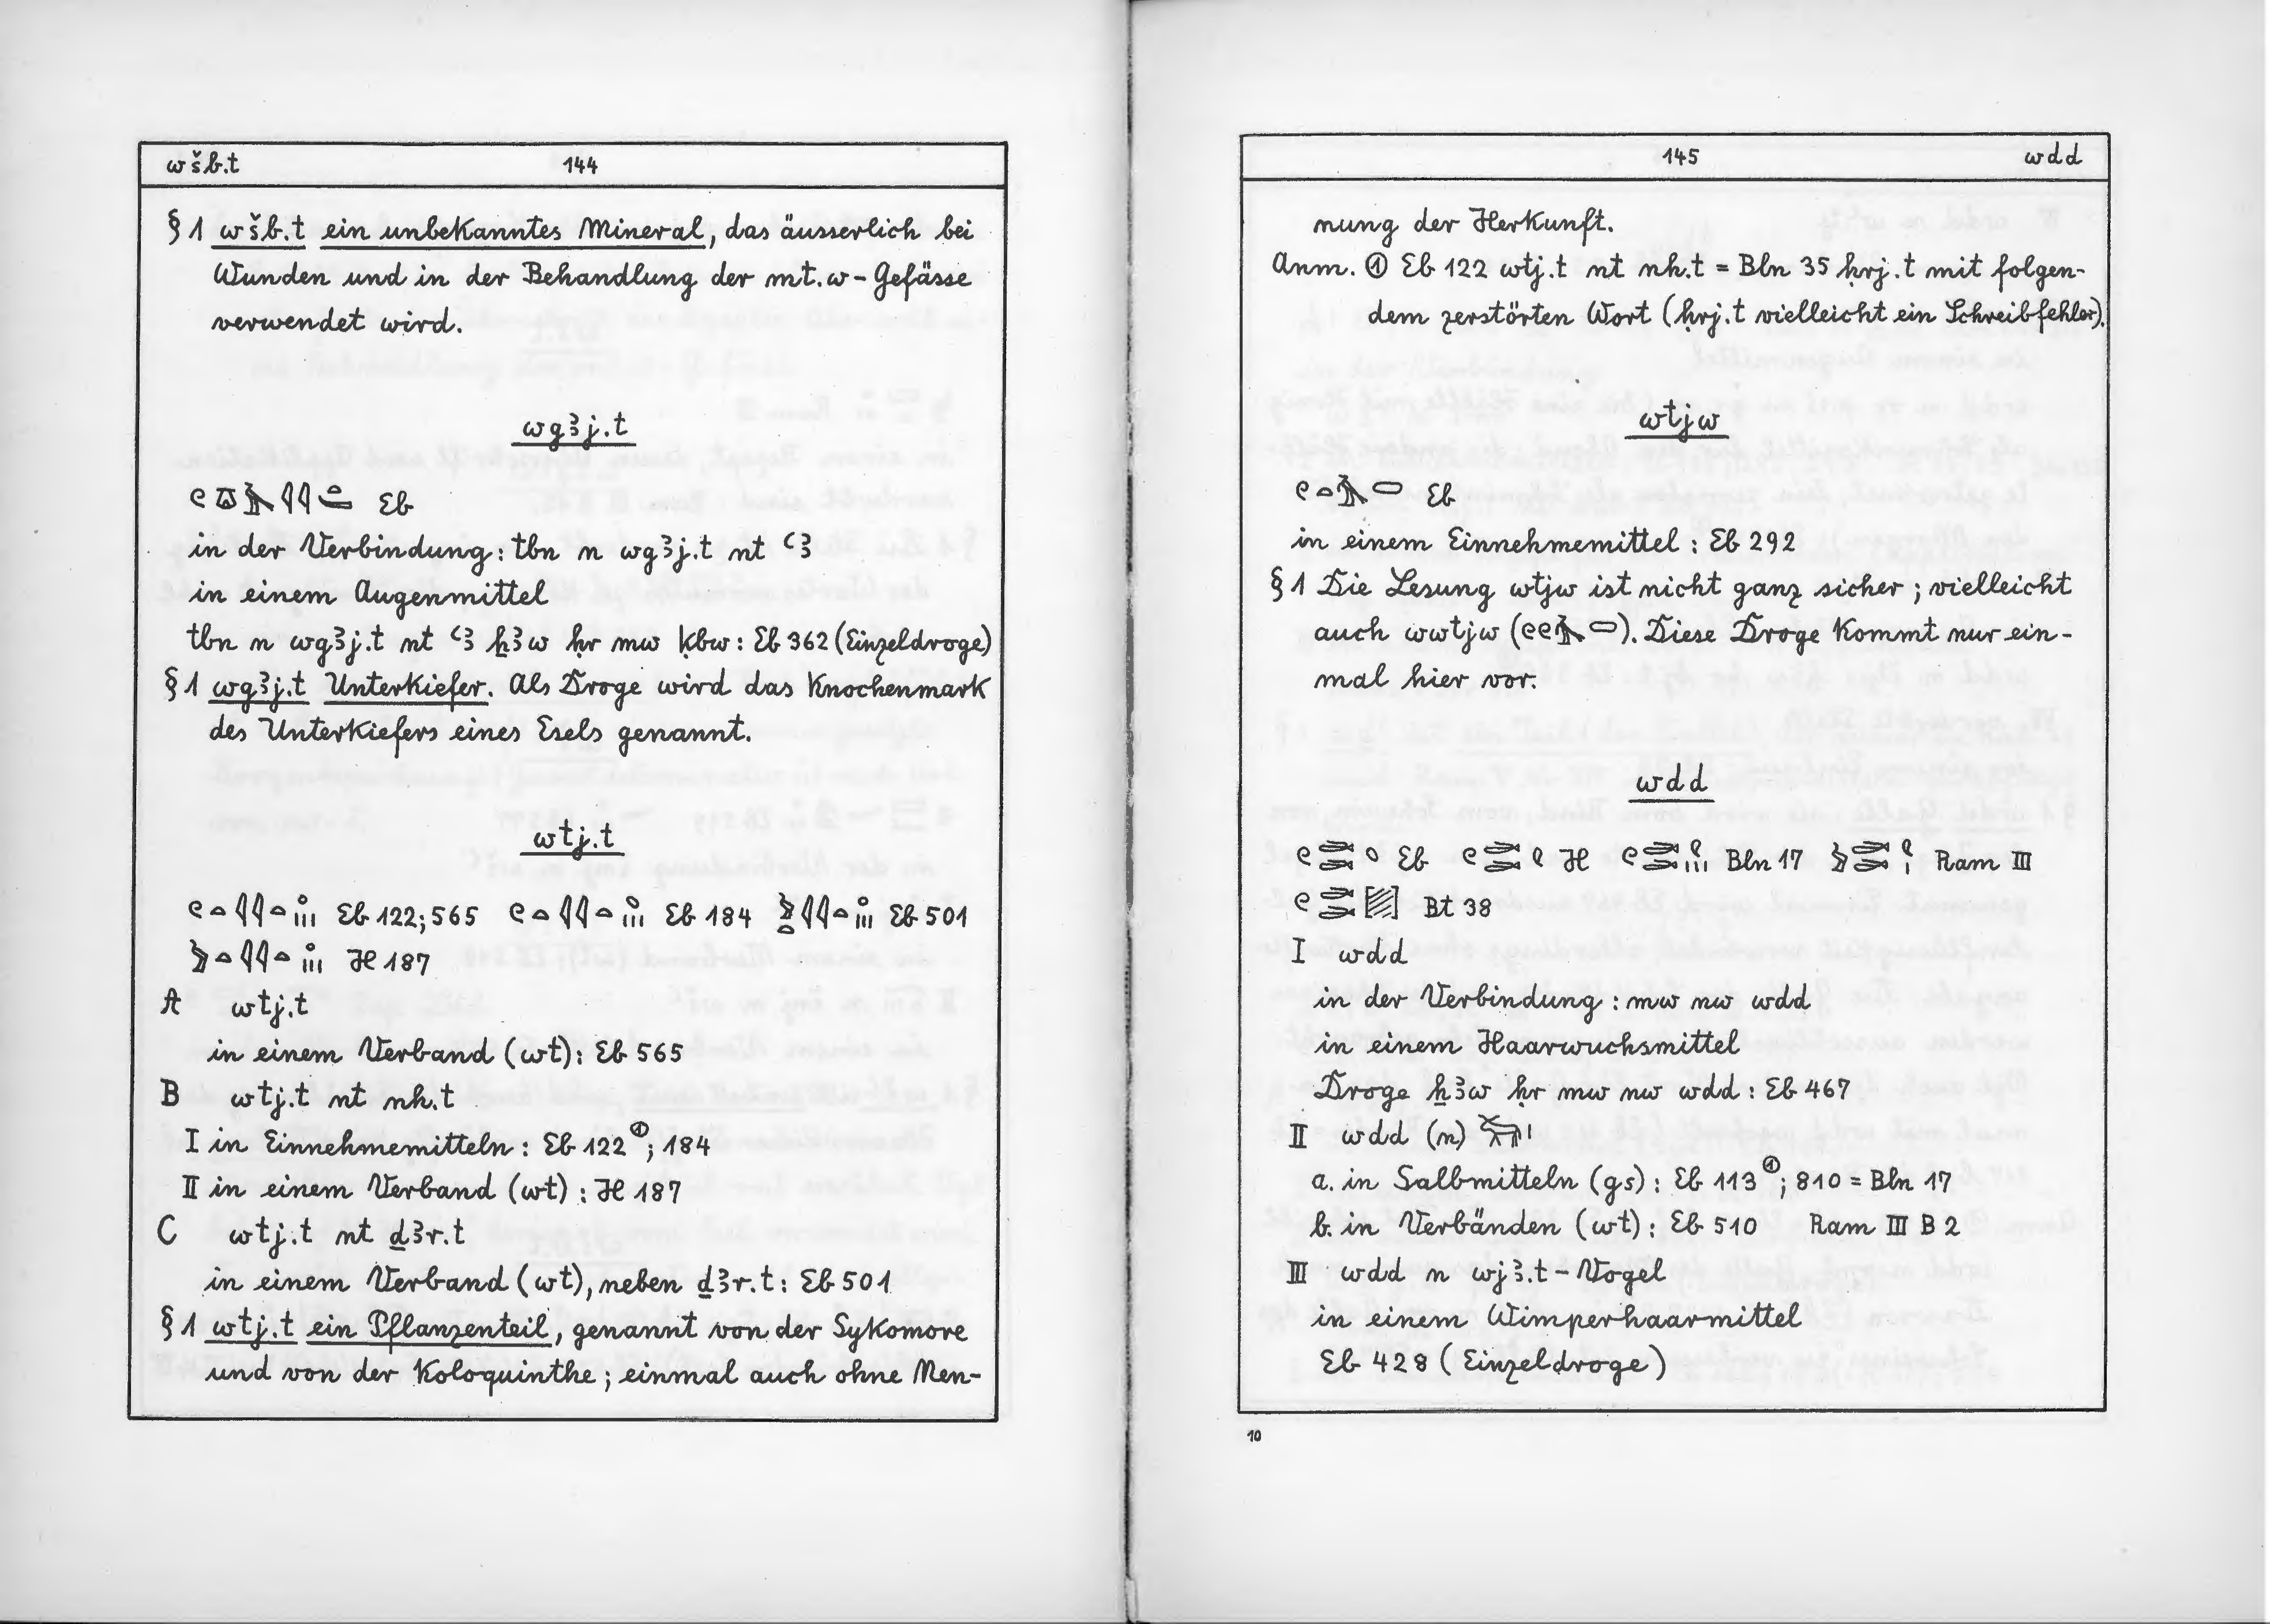 wšb.t 144
§ 1 wšb.t ein unbekanntes Mineral, das äusserlich bei
Wunden und in der Behandlung der mt.w-Gefässe
verwendet wird.
wgꜣj.t
Eb
in der Verbindung: tbn n wgꜣj.t nt ꜥꜣ
in einem Augenmittel
tbn n wgꜣj.t nt ꜥꜣ ẖꜣw ḥr mw ḳbw: Eb 362 (Einzeldroge)
§ 1 wgꜣj.t Unterkiefer. Als Droge wird das Knochenmark
des Unterkiefers eines Esels genannt.
wtj.t
Eb 122; 565 Eb 184 Eb 501
H 187
A wtj.t
in einem Verband (wt): Eb 565
B wtj.t nt nh.t
I in Einnehmemitteln: Eb 122①; 184
II in einem Verband (wt): H 187
C wtj.t nt ḏꜣr.t
in einem Verband (wt), neben ḏꜣr.t: Eb 501
§ 1 wtj.t ein Pflanzenteil, genannt von der Sykomore
und von der Koloquinthe; einmal auch ohne Nen-
145 wdd
nung der Herkunft.
Anm. ① Eb 122 wtj.t nt nh.t = Bln 35 ḥrj.t mit folgen-
dem zerstörten Wort (ḥrj.t vielleicht ein Schreibfehler).
wtjw
Eb
in einem Einnehmemittel: Eb 292
§ 1 Die Lesung wtjw ist nicht ganz sicher; vielleicht
auch wwtjw ( ). Diese Droge kommt nur ein-
mal hier vor.
wdd
Eb H Bln 17 Ram III
Bt 38
I wdd
in der Verbindung: mw nw wdd
in einem Haarwuchsmittel
Droge ẖꜣw ḥr mw nw wdd: Eb 467
II wdd (n)
a. in Salbmitteln (gs): Eb 113①; 810 = Bln 17
b. in Verbänden (wt): Eb 510 Ram III B 2
III wdd n wjꜣ.t-Vogel
in einem Wimperhaarmittel
Eb 428 (Einzeldroge)
10